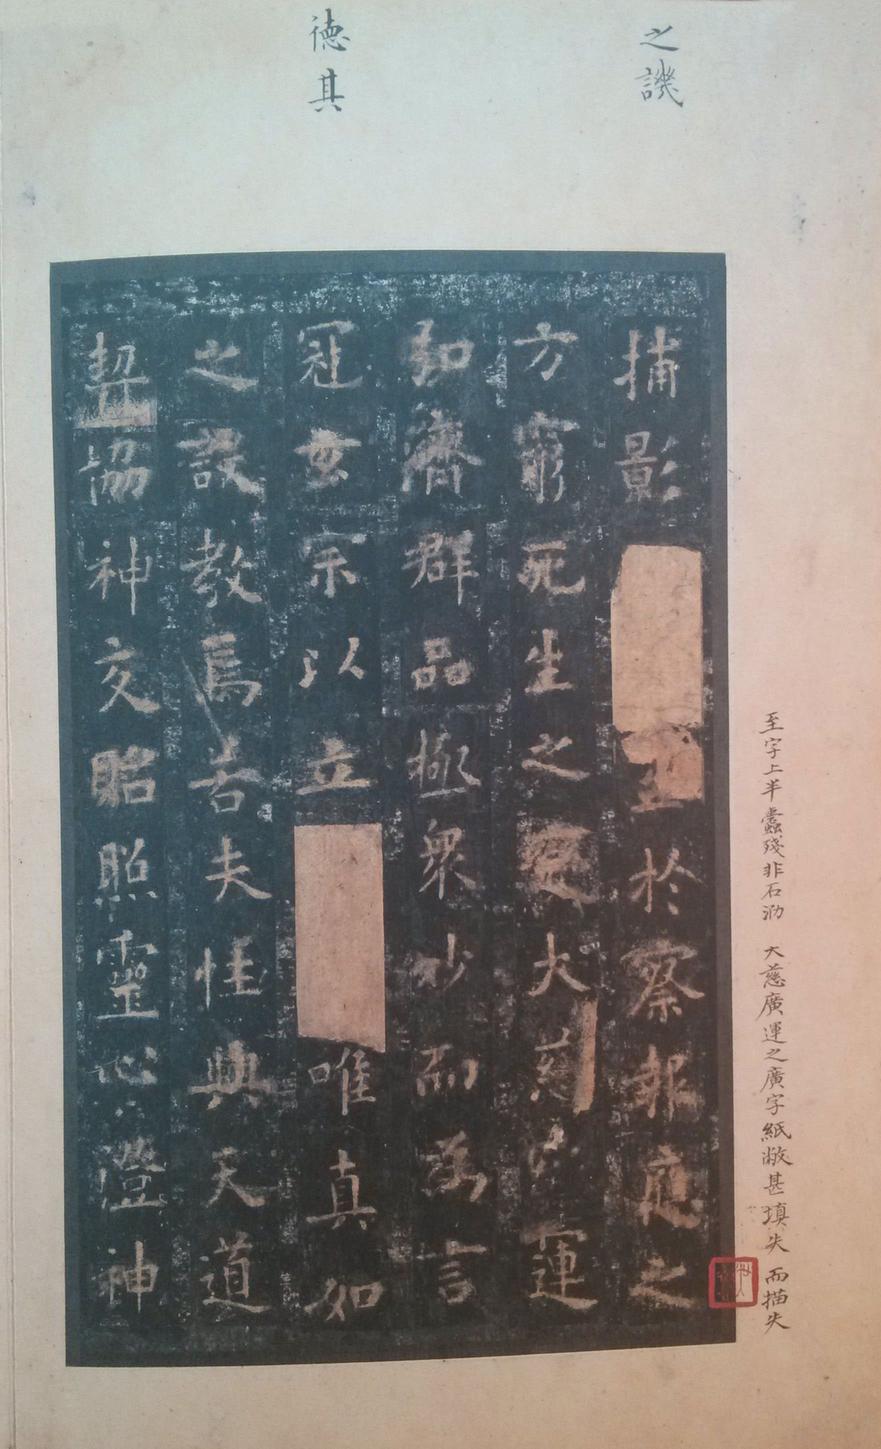 之譏
德其
捕影至於察報應之
方窮死生之變大慈廣運
弘濟群品極眾妙而為言
冠玄宗以立唯真如
之設教焉若夫性與天道
契協神交貽照靈心澄神
至字上半蠹殘非石泐 大慈廣運之廣字紙敝甚填失 而描失